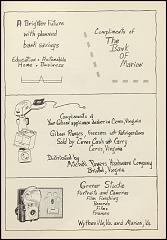 A Brighter Future
with planned
bank savings
Education - Automobile
Home - Business
Compliments of
The
Bank
of
Marion
Compliments of
Your Gibson appliance dealer in Ceres, Virginia
Gibson Ranges, freezers and Refrigerators
Sold by Ceres Cash & Carry
Ceres, Virginia
Distributed by
Hardware Company
Bristol, Virginia
Greear Studio
Portraits and Cameras
Film Finishing
Records
Films
Frames
Wytheville, Va. and Marion, Va.